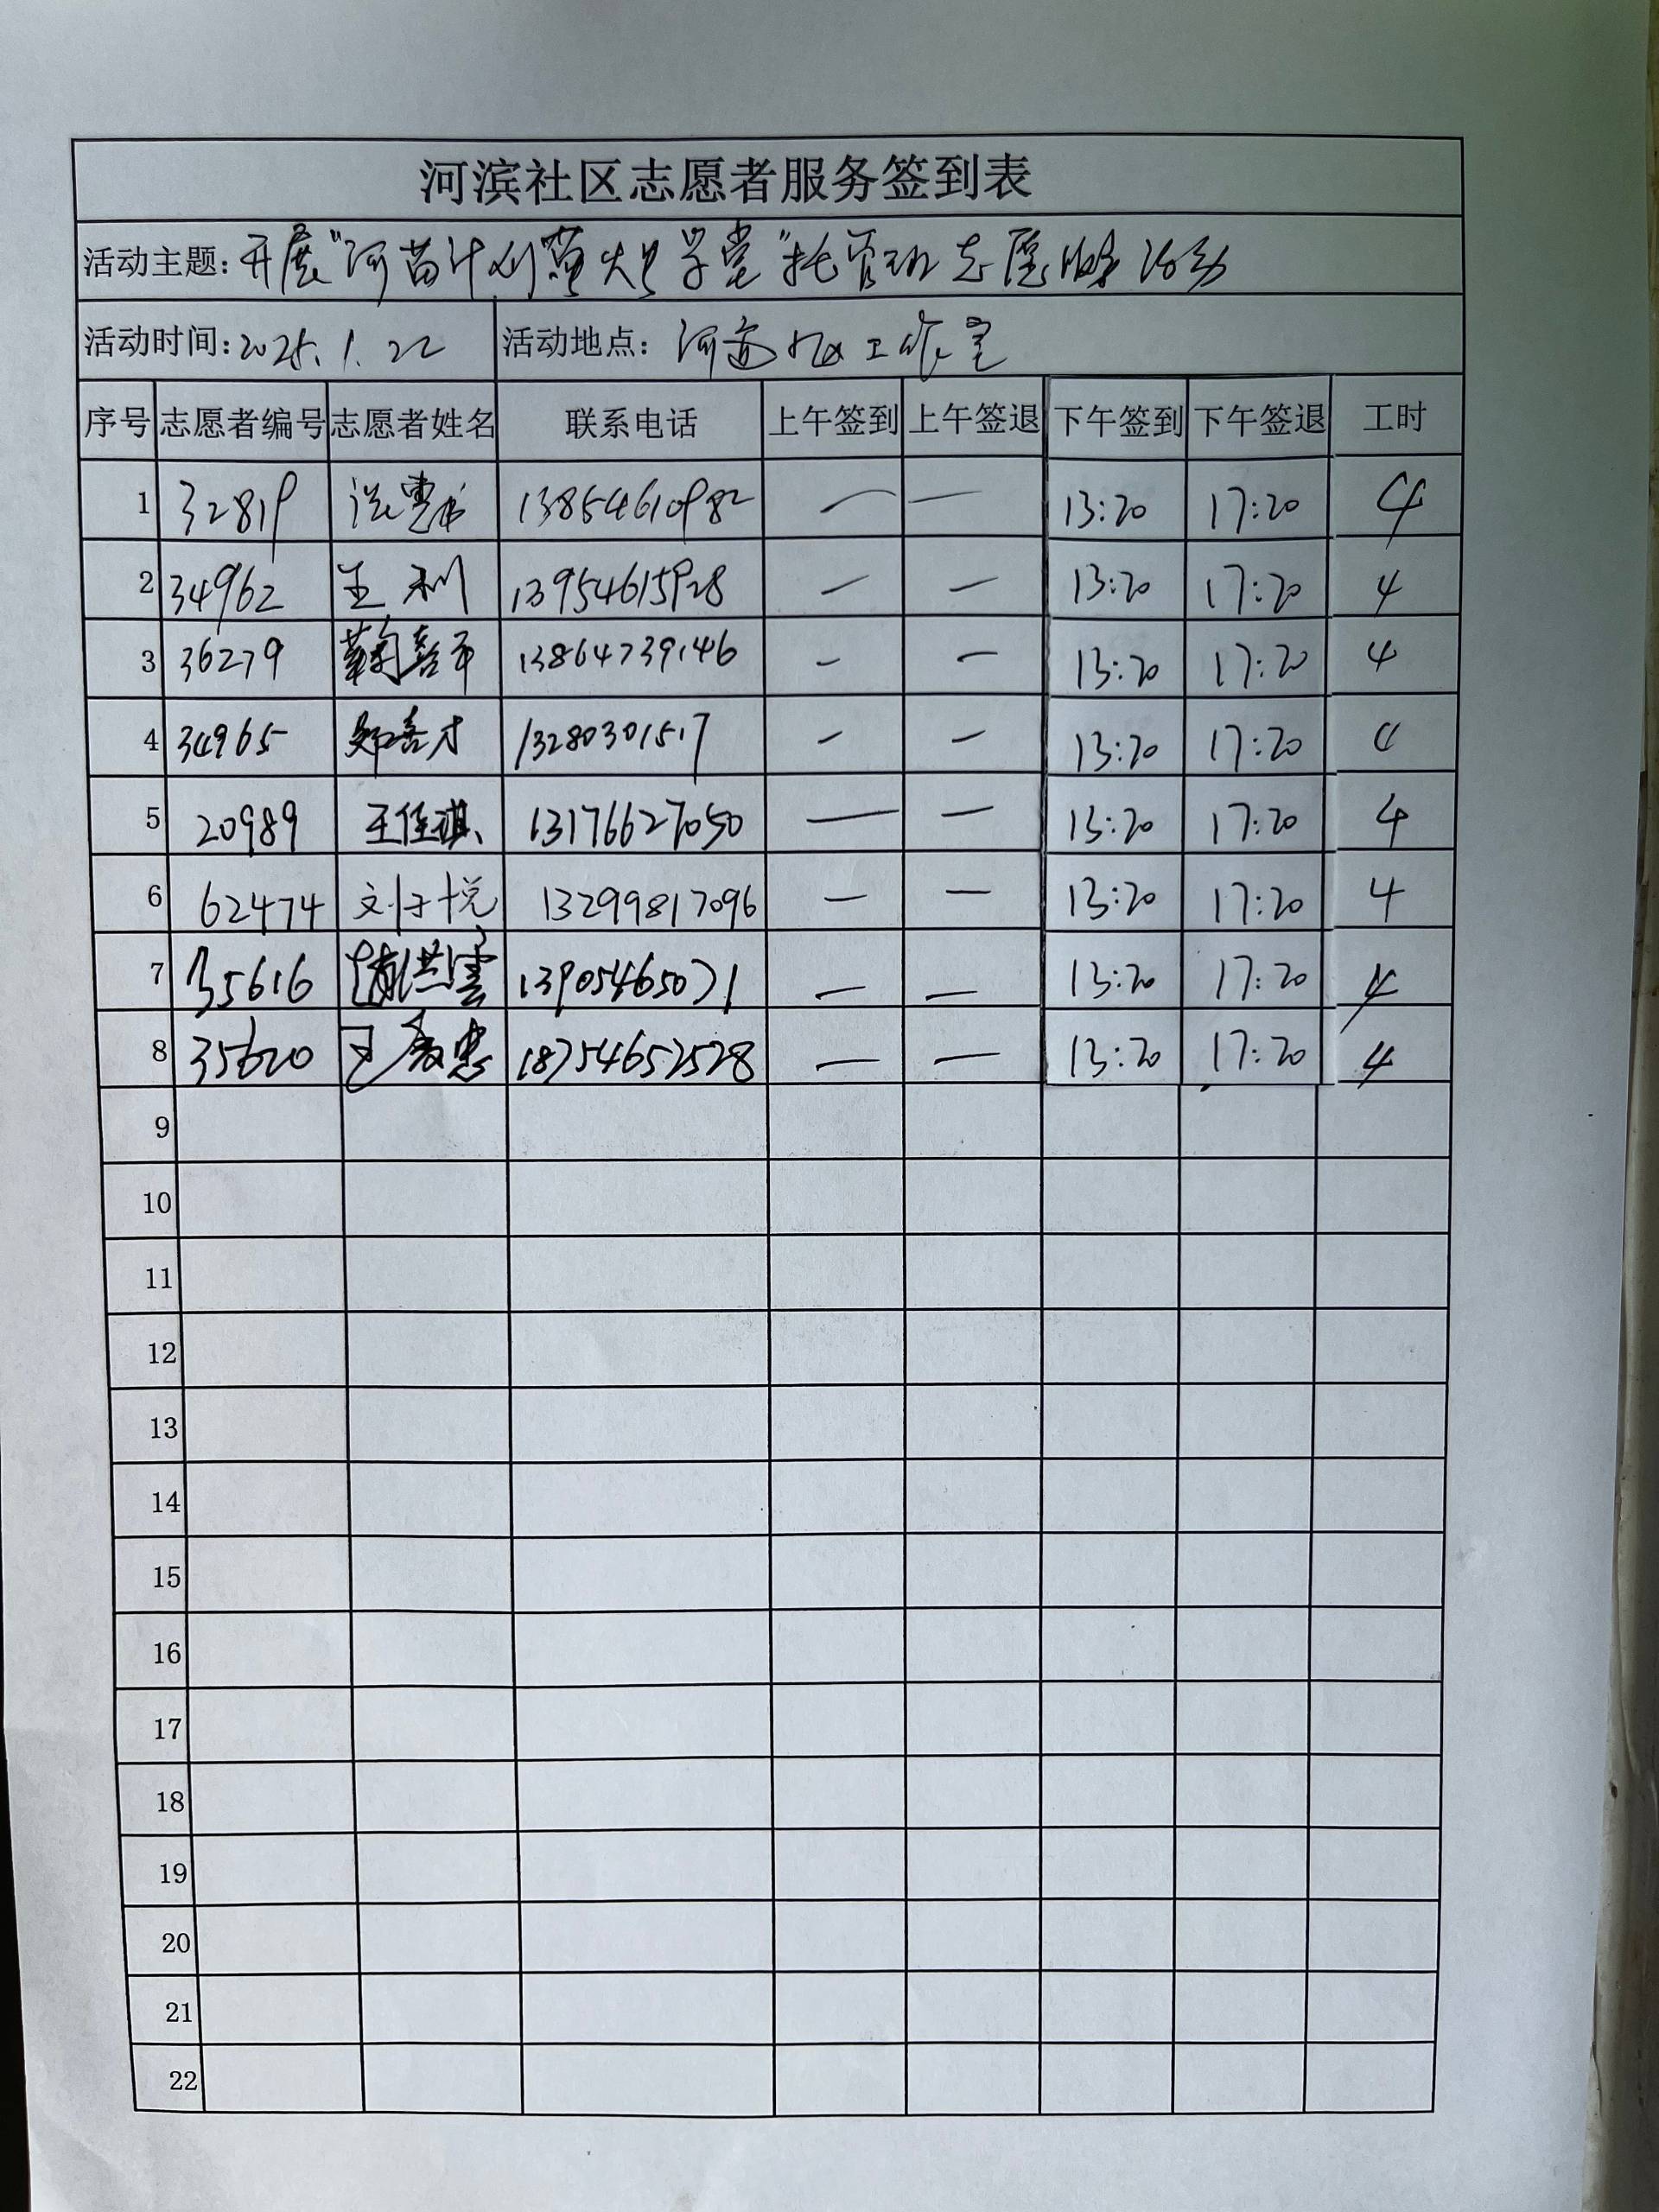 河滨社区志愿者服务签到表
活动主题：开展"河苗计划萤火虫学堂"托管班志愿服务活动
活动时间：2025.1.22 活动地点：工作室
序号 志愿者编号 志愿者姓名 联系电话 上午签到 上午签退 下午签到 下午签退 工时
1 32819 13854610982 — — 13:20 17:20 4
2 34962 王利 13954615928 — — 13:20 17:20 4
3 36279 13864739146 — — 13:20 17:20 4
4 34965 郑喜才 13280301517 — — 13:20 17:20 4
5 20989 王佳琪 13176627050 — — 13:20 17:20 4
6 62474 刘子悦 13299817096 — — 13:20 17:20 4
7 35616 赵洪云 13905465071 — — 13:20 17:20 4
8 35620 王 18754652528 — — 13:20 17:20 4
9
10
11
12
13
14
15
16
17
18
19
20
21
22